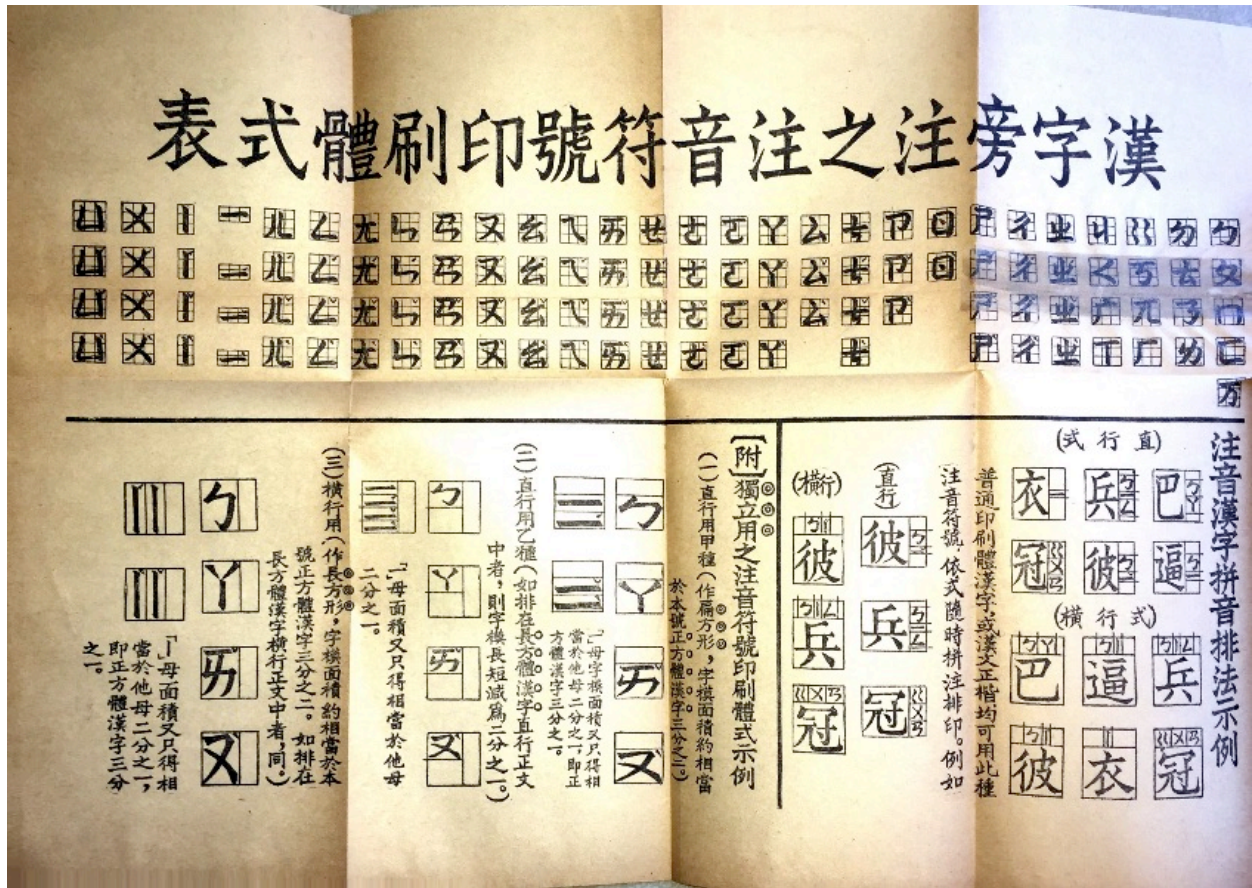 漢字旁注之注音符號印刷體式表
ㄅㄉㄍㄐㄓㄔㄕㄖㄗㄘㄙㄚㄛㄜㄝㄞㄟㄠㄡㄢㄣㄤㄥㄦ一丨ㄨㄩ
ㄆㄊㄎㄑㄓㄔㄕㄖㄗㄘㄙㄚㄛㄜㄝㄞㄟㄠㄡㄢㄣㄤㄥㄦ一丨ㄨㄩ
ㄇㄋㄫㄬㄓㄔㄕㄗㄘㄙㄚㄛㄜㄝㄞㄟㄠㄡㄢㄣㄤㄥㄦ一丨ㄨㄩ
ㄈㄌㄏㄒㄓㄔㄕㄘㄚㄛㄜㄝㄞㄟㄠㄡㄢㄣㄤㄥㄦ一丨ㄨㄩ
万
注音漢字拼音排法示例
(直行式)
巴ㄅㄚ 兵ㄅ一ㄥ 衣一
逼ㄅ一 彼ㄅ一 冠ㄍㄨㄢ
(橫行式)
兵ㄅ丨ㄥ 逼ㄅ丨 巴ㄅㄚ
冠ㄍㄨㄢ 衣丨 彼ㄅ丨
普通印刷體漢字,或漢文正楷,均可用此種
注音符號,依式隨時拼注排印。例如
(直行)
彼ㄅ一
兵ㄅ一ㄥ
冠ㄍㄨㄢ
(橫行)
彼ㄅ丨
兵ㄅ丨ㄥ
冠ㄍㄨㄢ
【附】獨立用之注音符號印刷體式示例
(一)直行用甲種(作扁方形,字模面積約相當
於本號正方體漢字三分之二。)
ㄅ ㄚ ㄞ ㄡ
一 一
「一」母字模面積又只得相
當於他母二分之一,即正
方體漢字三分之一。
(二)直行用乙種(如排在長方體漢字直行正文
中者,則字模長短減爲二分之一。)
ㄅ ㄚ ㄞ ㄡ
一 一 一
「一」母面積又只得相當於他母
二分之一。
(三)橫行用(作長方形,字模面積約相當於本
號正方體漢字三分之二。如排在
長方體漢字橫行正文中者,同。)
ㄅ ㄚ ㄞ ㄡ
丨丨
丨丨
「丨」母面積又只得相
當於他母二分之一,
即正方體漢字三分
之一。